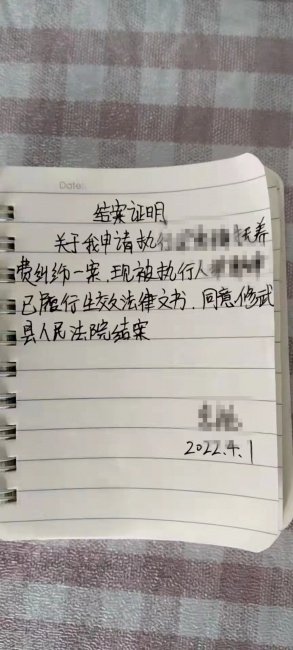 Date:
结案证明
关于我申请执行 抚养
费纠纷一案,现被执行人
已履行生效法律文书,同意修武
县人民法院结案
2022.4.1